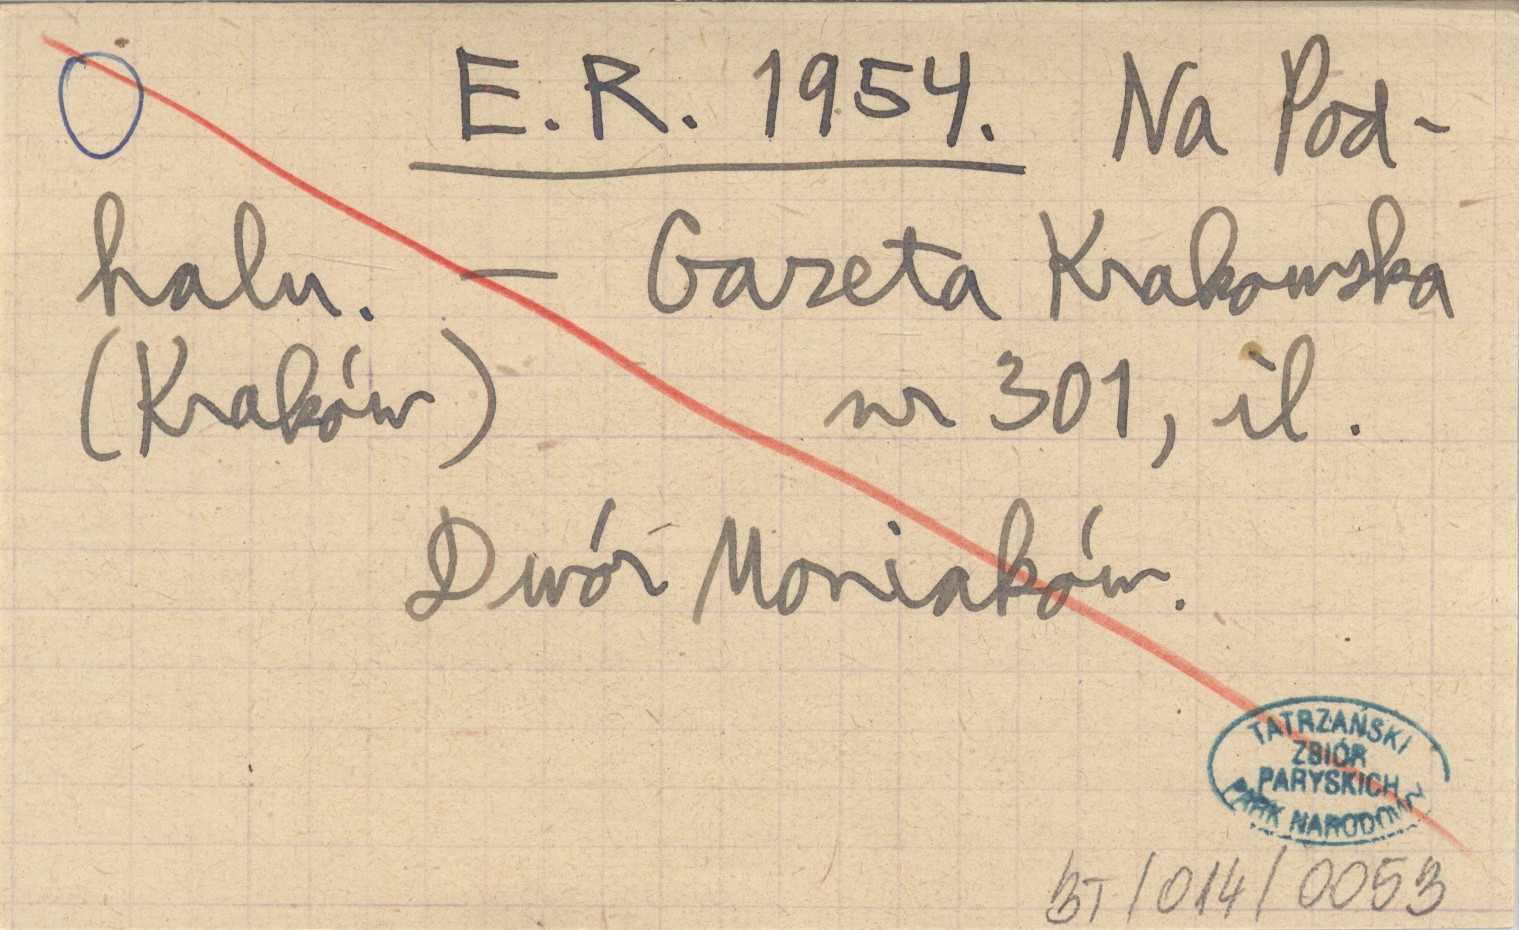 E.R. 1954. Na Pod-
halu. — Gazeta Krakowska
(Kraków) nr 301, il.
Dwór Moniaków.
TATRZAŃSKI
ZBIÓR
PARYSKICH
PARK NARODOWY
BT/014/0053